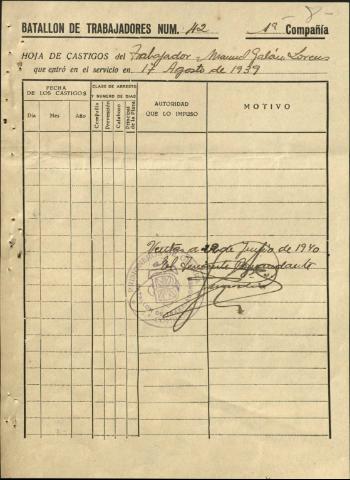 8-
BATALLON DE TRABAJADORES NUM. 42 1ª Compañía
HOJA DE CASTIGOS del Trabajador Manuel Galán Lorens
que entró en el servicio en 17 Agosto de 1939
FECHA DE LOS CASTIGOS
CLASE DE ARRESTO Y NUMERO DE DIAS
AUTORIDAD QUE LO IMPUSO
MOTIVO
Día Mes Año Compañía Prevención Calabozo Principal de la Plaza
de Junio de 1940
El Teniente Comandante